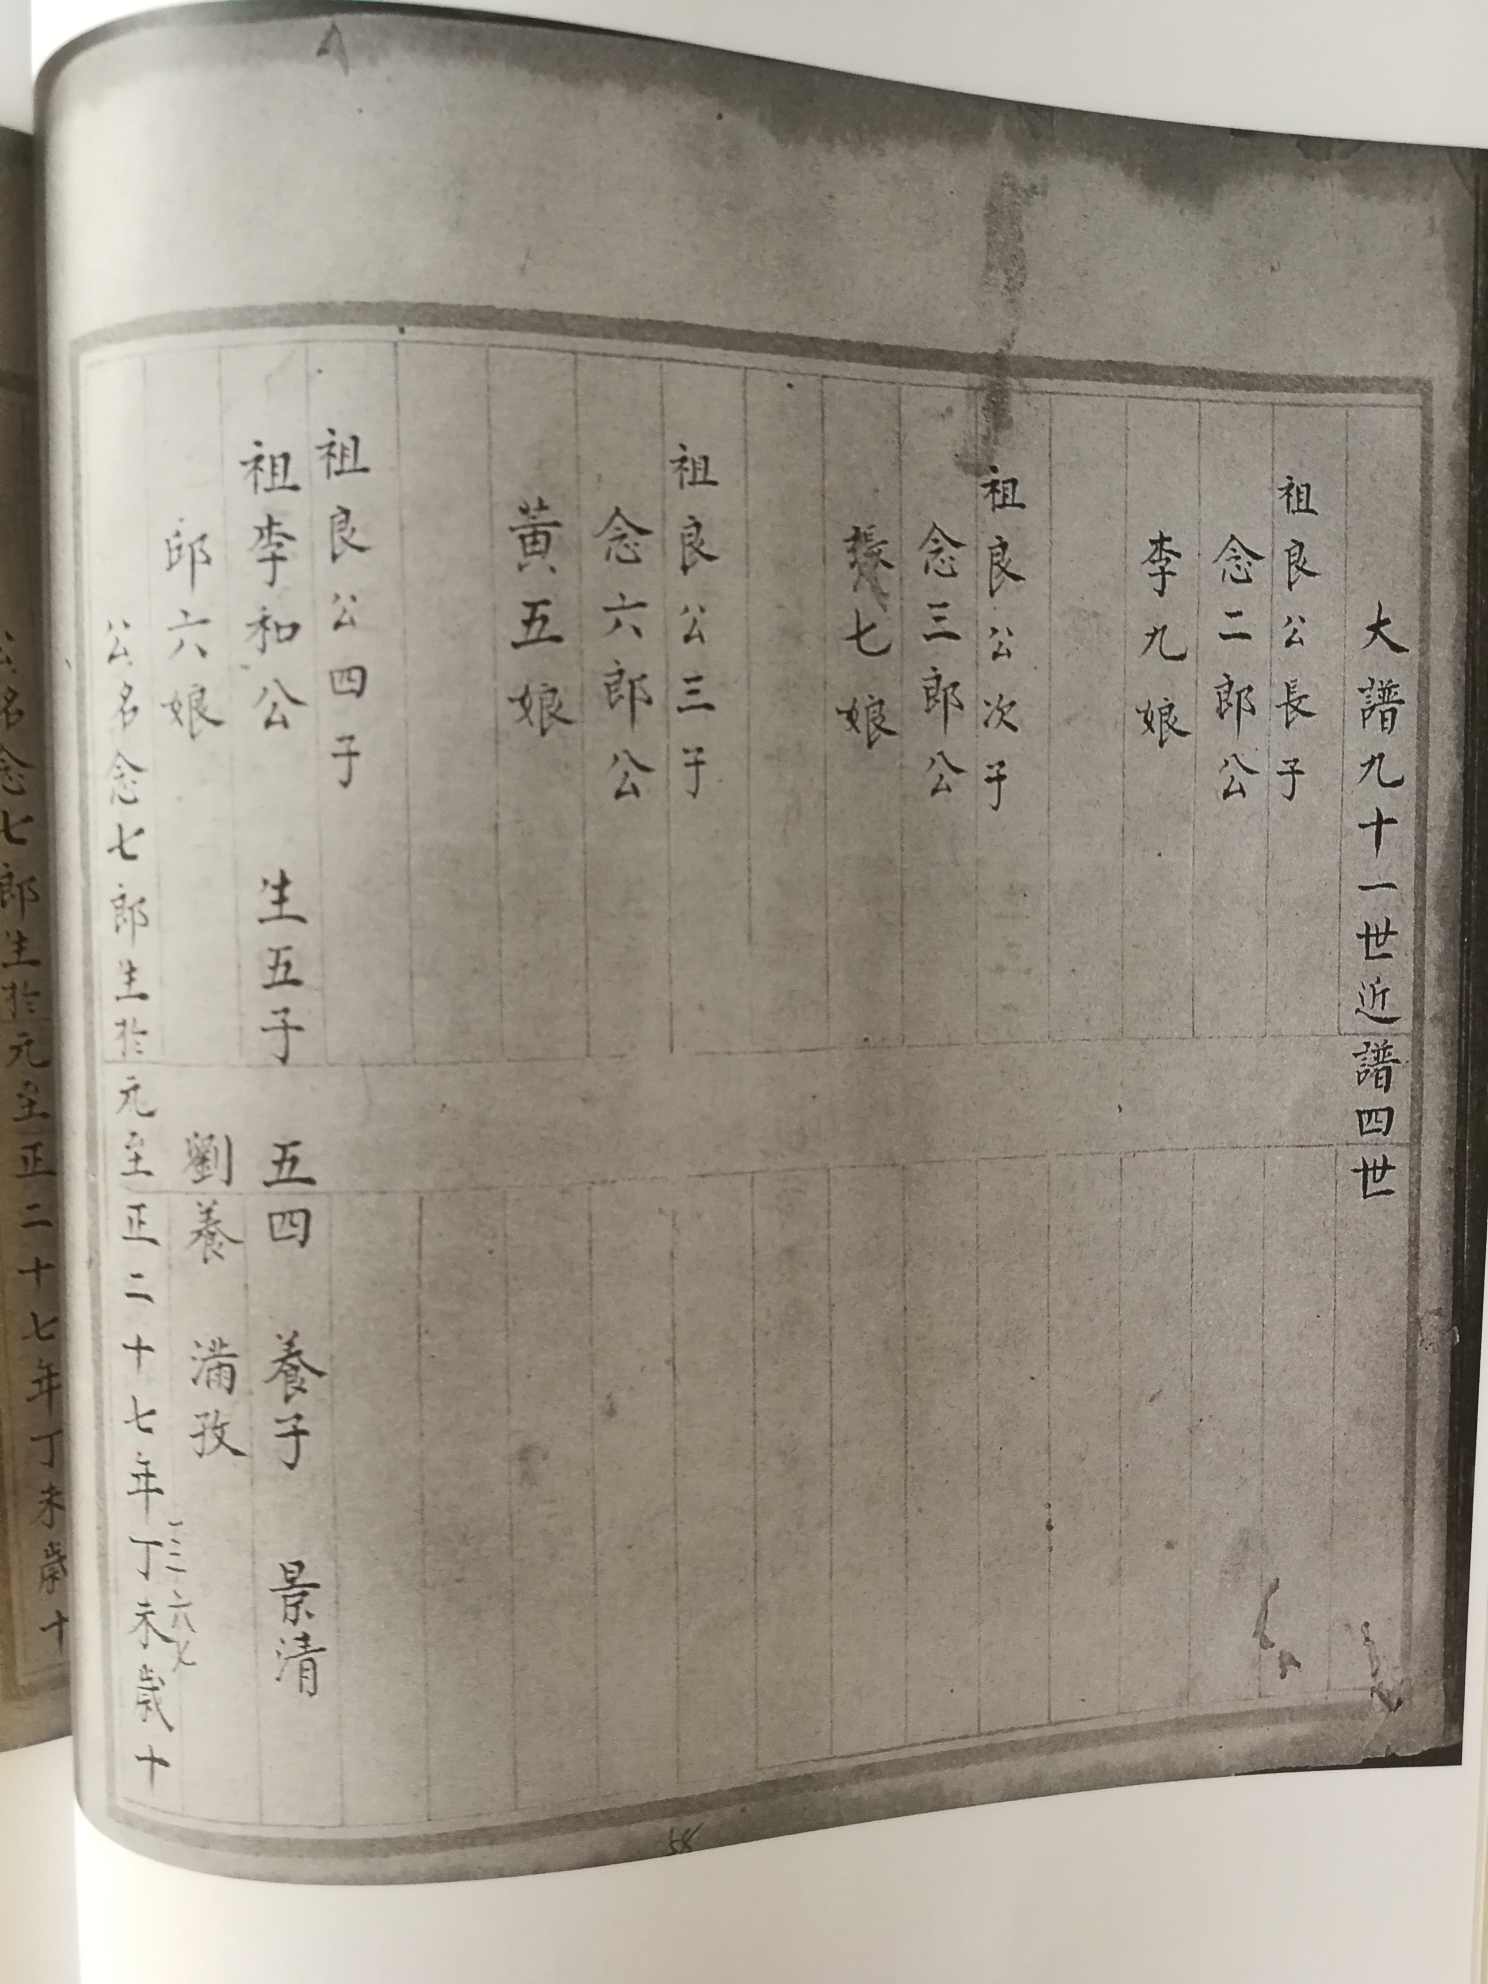 大譜九十一世近譜四世
祖良公長子
念二郎公
李九娘
祖良公次子
念三郎公
張七娘
祖良公三子
念六郎公
黄五娘
祖良公四子
祖李和公 生五子 五四 養子 景清
邱六娘 劉養 滿孜
一三六七
公名念七郎生於元至正二十七年丁未歲十
58
公名念七郎生於元至正二十七年丁未歲十